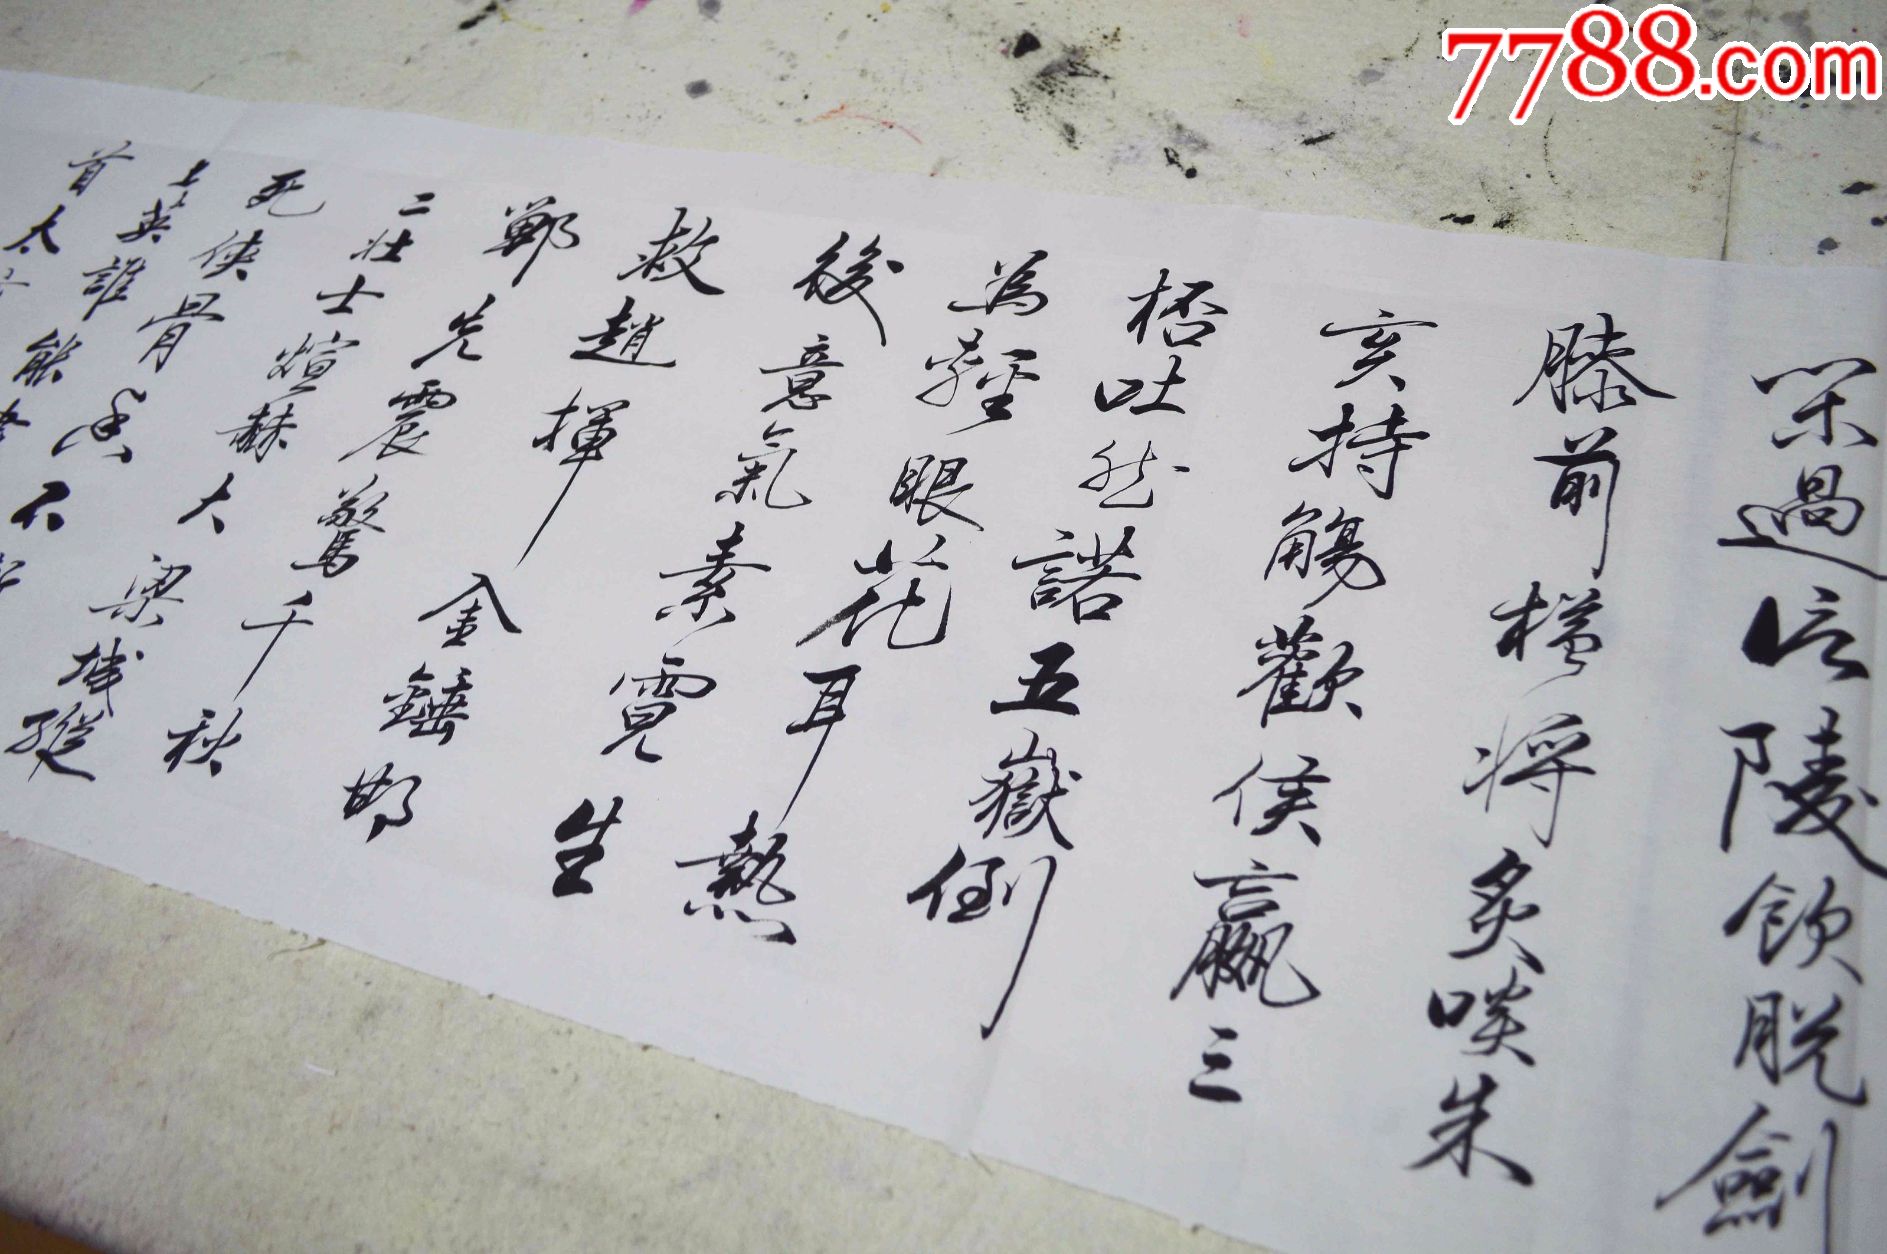 閑過信陵飲脫劍
膝前横將炙啖朱
亥持觴歡侯嬴三
桮吐然諾五嶽倒
為輕眼花耳熱
後意氣素霓生
救趙揮金錘邯
鄲先震驚千秋
二壯士煊赫大梁城縱
死俠骨香不
上英誰能
首太
7788.com